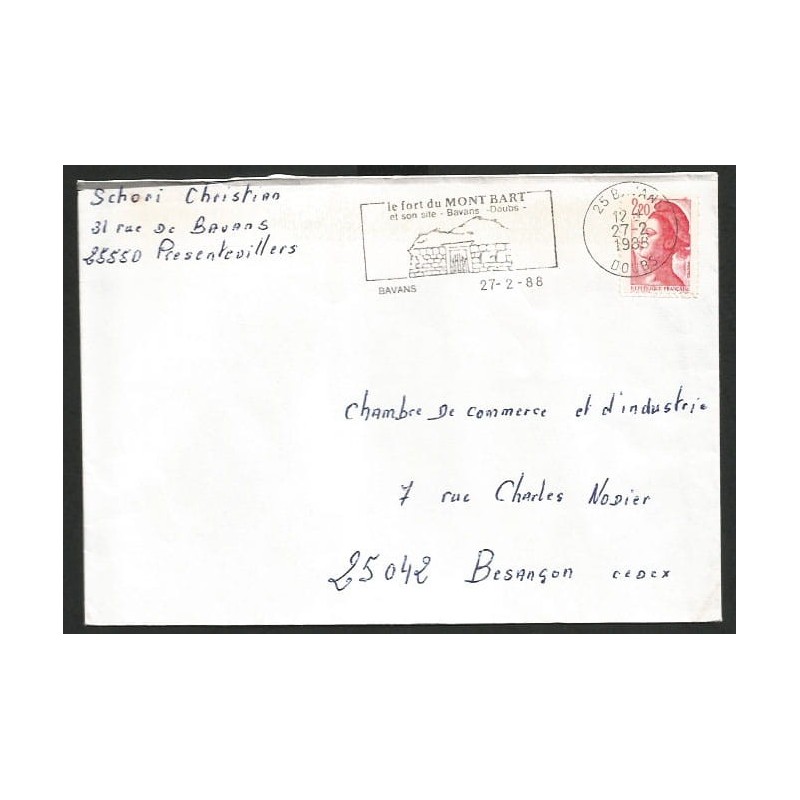 Schori Christian
31 rue De BAVANS
25550 Presentevillers
le fort du MONT BART
et son site - Bavans -Doubs-
BAVANS
27-2-88
25 BAVANS
12 H
27-2
1988
DOUBS
2,20
REPUBLIQUE FRANÇAISE
Chambre De commerce et d'industrie
7 rue Charles Nodier
25042 Besançon CEDEX